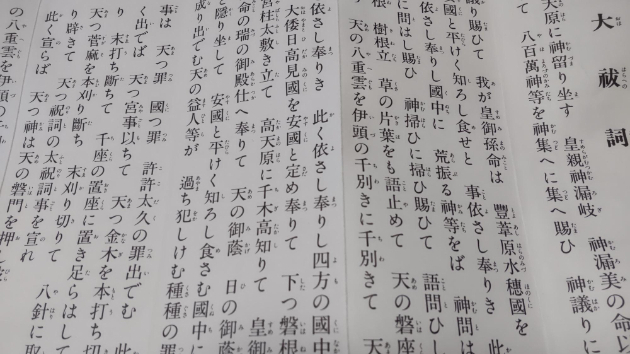 大祓詞
天原に神留り坐す　皇親神漏岐　神漏美の命以
て　八百萬神等を神集へに集へ賜ひ　神議りに
議り賜ひて　我が皇御孫命は　豐葦原水穗國を
國と平けく知ろし食せと　事依さし奉りき　此
依さし奉りし國中に　荒振る神等をば　神問は
に問はし賜ひ　神掃ひに掃ひ賜ひて　語問ひし
根　樹根立　草の片葉をも語止めて　天の磐座
天の八重雲を伊頭の千別きに千別きて　天
依さし奉りき　此く依さし奉りし四方の國中
大倭日高見國を安國と定め奉りて　下つ磐根
宮柱太敷き立て　高天原に千木高知りて　皇御
命の瑞の御殿仕へ奉りて　天の御蔭　日の御蔭
と隱り坐して　安國と平けく知ろし食さむ國中に
成り出でむ天の益人等が　過ち犯しけむ種種の罪
事は　天つ罪　國つ罪　許許太久の罪出でむ　此
く出でば　天つ宮事以ちて　天つ金木を本打ち切
り　末打ち斷ちて　千座の置座に置き足らはして
天つ菅麻を本刈り斷ち　末刈り切りて　八針に取
り辟きて　天つ祝詞の太祝詞事を宣れ
此く宣らば　天つ神は天の磐門を押し
の八重雲を伊頭の